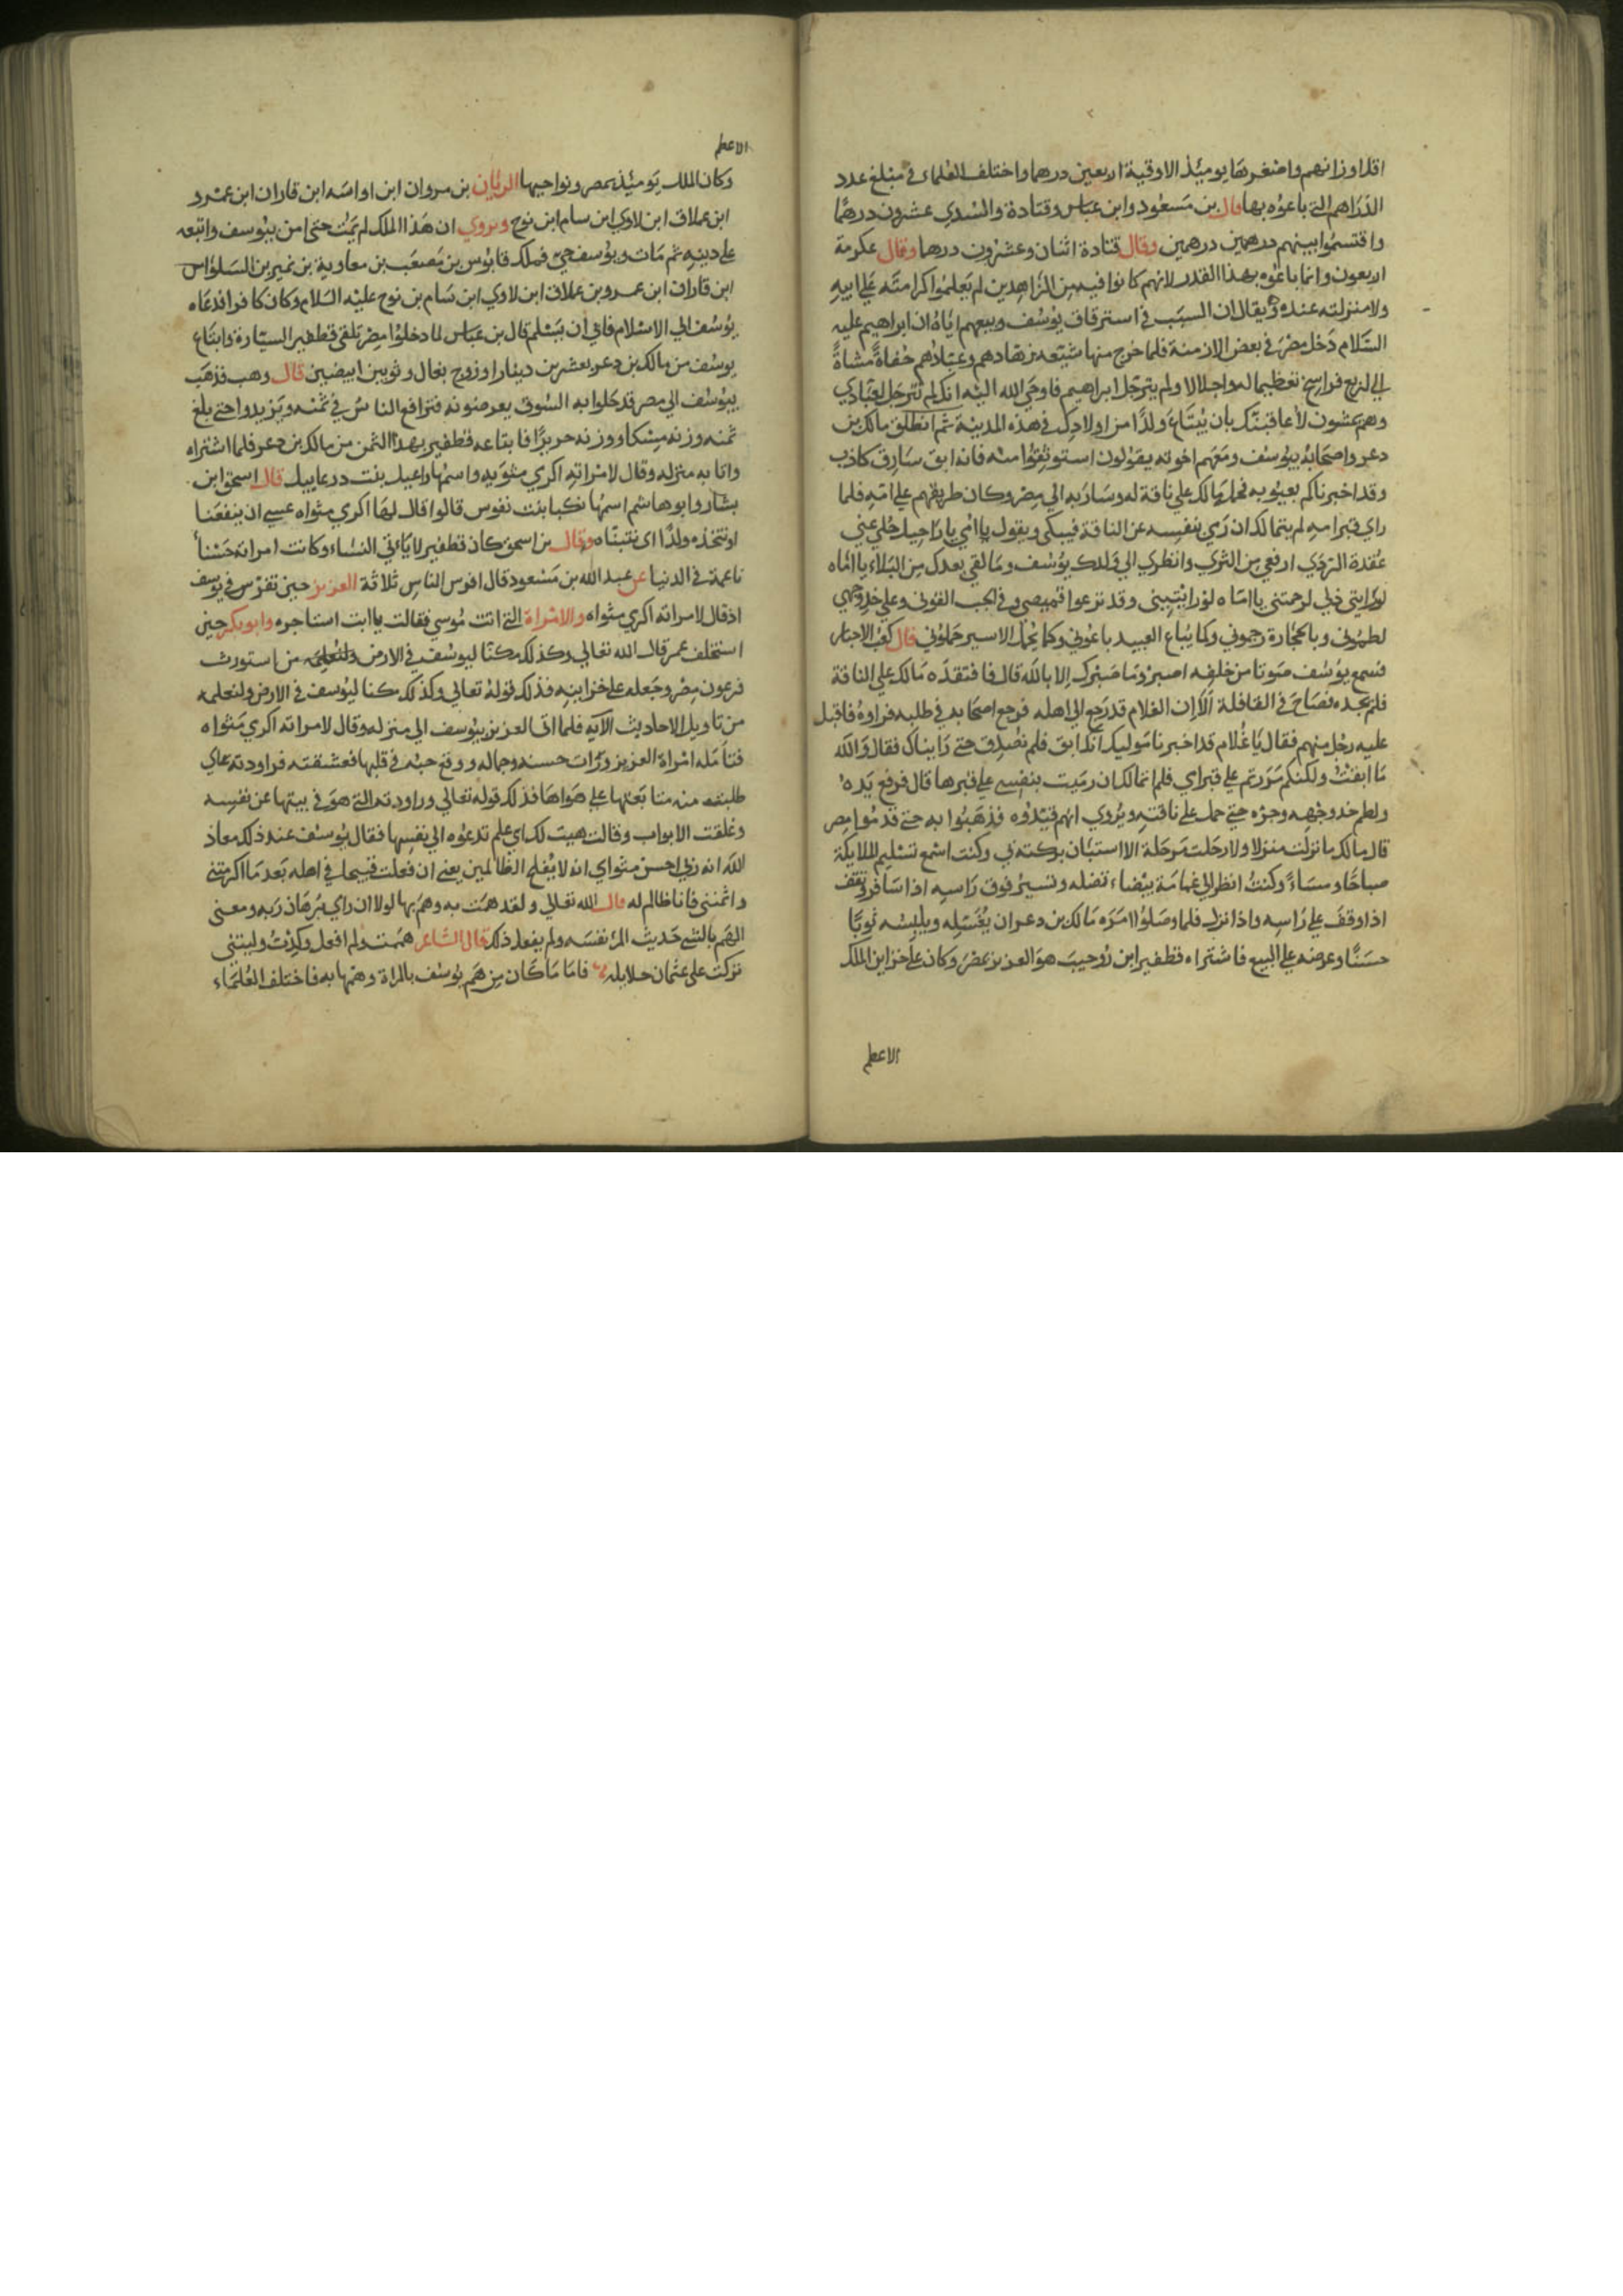 اقل اوزانهم واصغرها يوميئذ الاوقية اربعين درهما واختلف العلماء في مبلغ عدد
الدراهم التي باعوه بها قال بن مسعود وابن عباس وقتادة والسدي عشرون درهمًا
واقتسموا بينهم درهمين درهمين وقال قتادة اثنان وعشرون درها وقال عكرمة
اربعون وانما باعوه بهذا القدر لانهم كانوا فيه من الزاهدين لم يعلموا كرامته علي ابيه
ولا منزلته عنده ويقال ان السبب في استرقاق يوسف وبيعهم اياه ان ابراهيم عليه
السلام دخل مصر في بعض الازمنة فلما خرج منها شيعه زهادهم وعبادهم حفاةً مشاةً
الي اربع فراسخ تعظيما له واجلالا ولم يترجل ابراهيم فاوحي الله اليه انك لم تترجل لعبادي
وهم يمشون لأعاقبنك بان يُبتاع ولدًا من اولادك في هذه المدينة ثم انطلق مالك بن
دعر واصحابه بيوسف ومعهم اخوته يقولون استوثقوا منه فانه ابق سارق كاذب
وقد اخبرناكم بعيوبه فحمله مالك علي ناقة له وسار به الي مصر وكان طريقهم علي امه فلما
راي قبر امه لم يتمالك ان رمي بنفسه عن الناقة فيبكي ويقول يا امي يا راحيل حلي عني
عقدة الردي ارفعي من الثري وانظري الي ولدك يوسف وما لقي بعدك من البلاء يا اماه
لو رايتي ذلي لرحمتني يا اماه لو رايتيني وقد نزعوا قميصي وفي الجب القوني وعلي خد وجهي
لطموني وبالحجارة رجموني وكما يُباع العبيد باعوني وكما يُحمل الاسير حملوني قال كعب الاحبار
فسمع يوسف صوتا من خلفه اصبر وما صبرك الا بالله قال فافتقده مالك علي الناقة
فلم يجده فصاح في القافلة ألا إن الغلام قد رجع الي اهله فرجع اصحابه في طلبه فراوه فاقبل
عليه رجل منهم فقال يا غلام قد اخبرنا مواليك انك ابق فلم نصدق حتي رايناك فقال والله
ما ابقت ولكنكم مررتم علي قبر امي فلم اتمالك ان رميت بنفسي علي قبرها قال فرفع يده
ولطم خد وجهه وجره حتي حمله علي ناقته ويُروي انهم قيدوه فذهبوا به حتي قدموا مصر
قال مالك ما نزلت منزلا ولا رحلت مرحلة الا استبان بركته لي وكنت اسمع تسليم الملايكة
صباحًا ومساءً وكنتُ انظر الي غمامة بيضاء تضله وتسير فوق راسه اذا سافر وتقف
اذا وقف علي راسه واذا نزل فلما وصلوا امره مالك بن دعر ان يغتسل ويلبسه ثوبًا
حسنًا وعرضه علي البيع فاشتراه قطفير ابن روحيب هو العزيز بمصر وكان علي خزاين الملك
الاعظم
الاعظم
وكان الملك يوميئذ بمصر ونواحيها الريان بن مروان ابن اواسه ابن قاران ابن عمرو
ابن عملاق ابن لاوي ابن سام ابن نوح ويروي ان هذا الملك لم يمت حتي امن بيوسف واتبعه
علي دينه ثم مات ويوسف حي فملك قابوس بن مصعب بن معاوية بن نمير بن السلواس
ابن قاران ابن عمرو بن علاق ابن لاوي ابن سام بن نوح عليه السلام وكان كافرا فدعاه
يوسف الي الاسلام فابي ان يسلم قال بن عباس لما دخلوا مصر تلقي قطفير السيارة وابتاع
يوسف من مالك بن دعر بعشرين دينارا وزوج بغال وثوبين ابيضين قال وهب فذهب
بيوسف الي مصر فدخلوا به السوق يعرضونه فترافع الناس في ثمنه ويزيدوا حتي بلغ
ثمنه وزنه مسكا ووزنه حريرًا فابتاعه قطفير بهذا الثمن من مالك بن دعر فلما اشتراه
واتا به منزله وقال لامراته اكرمي مثويه واسمها راعيل بنت درعاييل قال اسحق ابن
بشار وابو هاشم اسمها نكبا بنت نفوس قالوا قال لها اكرمي مثواه عسي ان ينفعنا
او نتخذه ولدًا اي نتبناه وقال بن اسحق كان قطفير لا ياءتي النساء وكانت امراته حسناً
ناعمة في الدنيا عن عبد الله بن مسعود قال افرس الناس ثلاثة العزيز حين تفرس في يوسف
اذ قال لامراته اكرمي مثواه والامراة التي اتت موسي فقالت يا ابت استاجره وابو بكر حين
استخلف عمر قال الله تعالي وكذلك مكنا ليوسف في الارض ولنعلمه من استورث
فرعون مصر وجعله علي خزاينه فذلك قوله تعالي وكذلك مكنا ليوسف في الارض ولنعلمه
من تاويل الاحاديث الآيه فلما اتى العزيز بيوسف الي منزله وقال لامراته اكرمي مثواه
فتأمله امراة العزيز ورَاَت حسنه وجماله ووقع حبه في قلبها فعشقته فراودته علي
طلبته منه متابعتها علي هواها فذلك قوله تعالي وراودته التي هو في بيتها عن نفسه
وغلقت الابواب وقالت هيت لك اي علم تدعوه الي نفسها فقال يوسف عند ذلك معاذ
الله انه ربي احسن مثواي انه لا يُفلح الظالمين يعني ان فعلت قبيحا في اهله بعد ما اكرمتني
وائمنني فانا ظالم له قال الله تعالي ولقد همت به وهم بها لولا ان راي برهان ربه ومعني
الهم بالشي حديث المرء نفسه ولم يفعل ذلك قال الشاعر هممت ولم افعل وكدتُ وليتني
تركت علي عثمان حلايله فاما ما كان من هم يوسف بالمراة وهمها به فاختلف العلماء